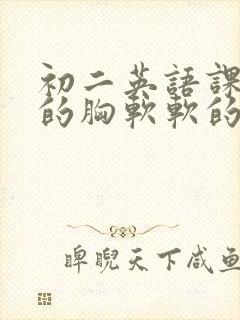 初二英語課
的胸軟軟的
睥睨天下咸鱼